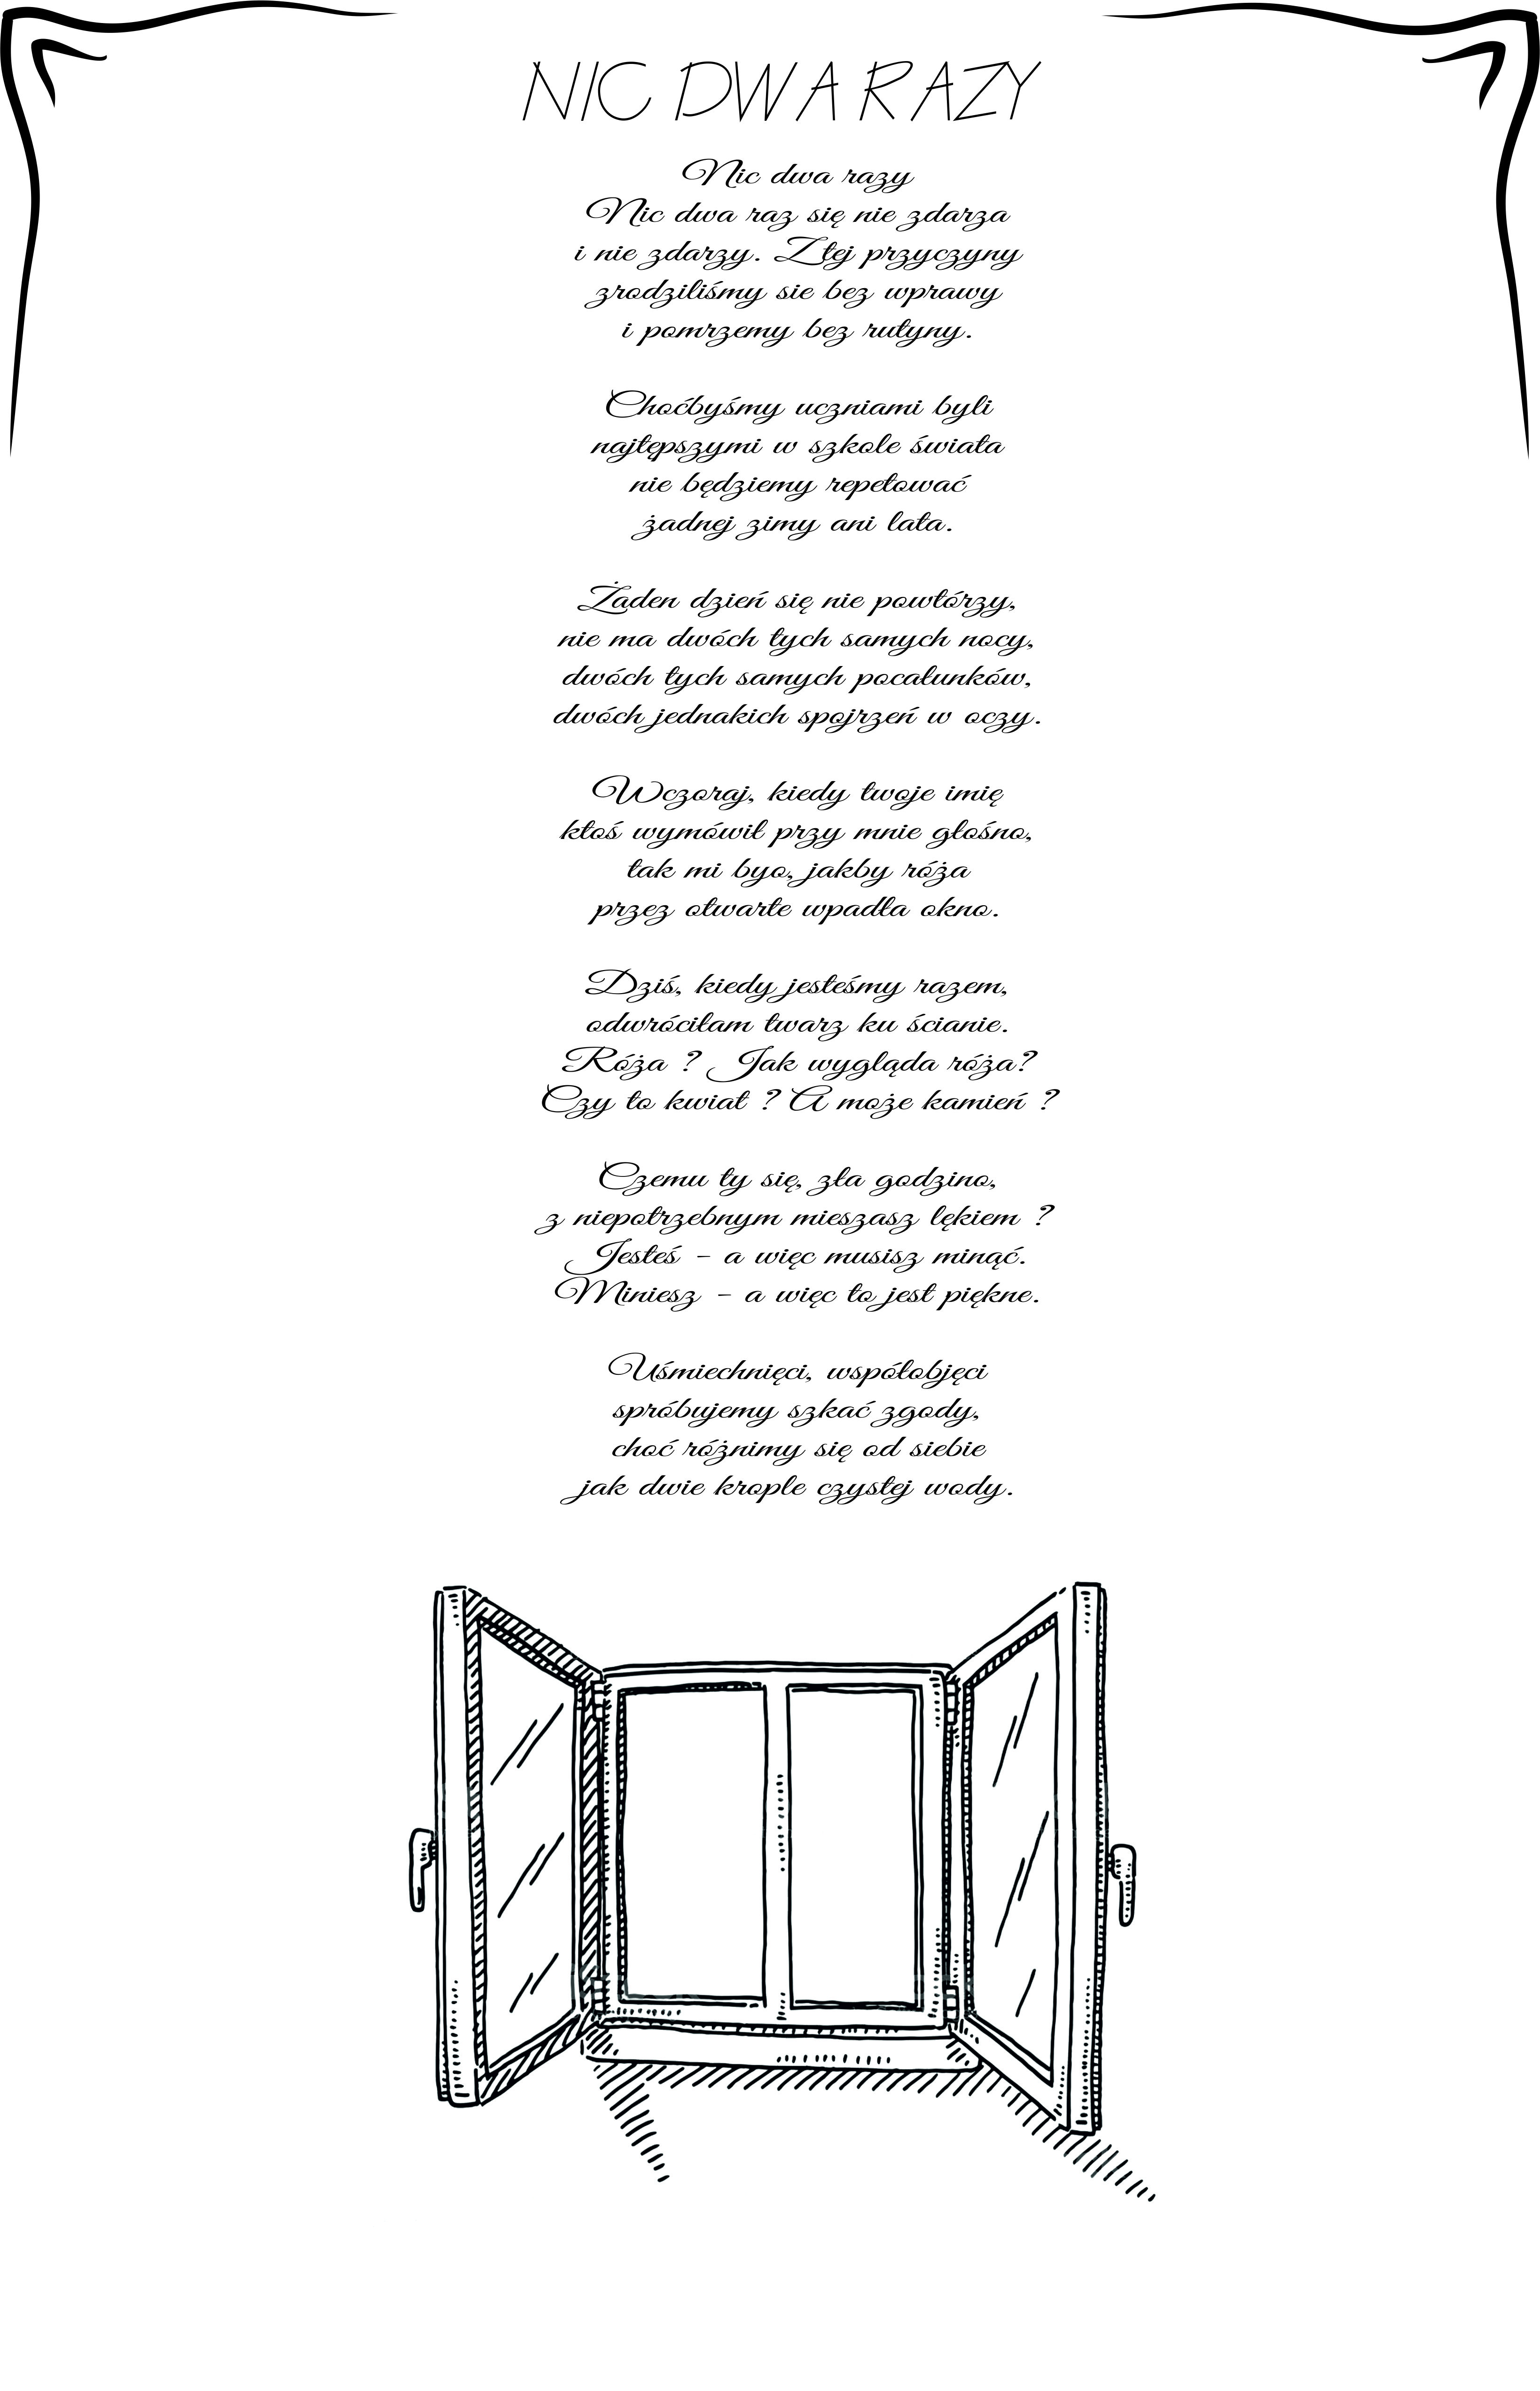 NIC DWA RAZY
Nic dwa razy
Nic dwa raz się nie zdarza
i nie zdarzy. Z tej przyczyny
zrodziliśmy sie bez wprawy
i pomrzemy bez rutyny.
Choćbyśmy uczniami byli
najtępszymi w szkole świata
nie będziemy repetować
żadnej zimy ani lata.
Żaden dzień się nie powtórzy,
nie ma dwóch tych samych nocy,
dwóch tych samych pocałunków,
dwóch jednakich spojrzeń w oczy.
Wczoraj, kiedy twoje imię
ktoś wymówił przy mnie głośno,
tak mi byo, jakby róża
przez otwarte wpadła okno.
Dziś, kiedy jesteśmy razem,
odwróciłam twarz ku ścianie.
Róża ? Jak wygląda róża?
Czy to kwiat ? A może kamień ?
Czemu ty się, zła godzino,
z niepotrzebnym mieszasz lękiem ?
Jesteś - a więc musisz minąć.
Miniesz - a więc to jest piękne.
Uśmiechnięci, współobjęci
spróbujemy szkać zgody,
choć różnimy się od siebie
jak dwie krople czystej wody.